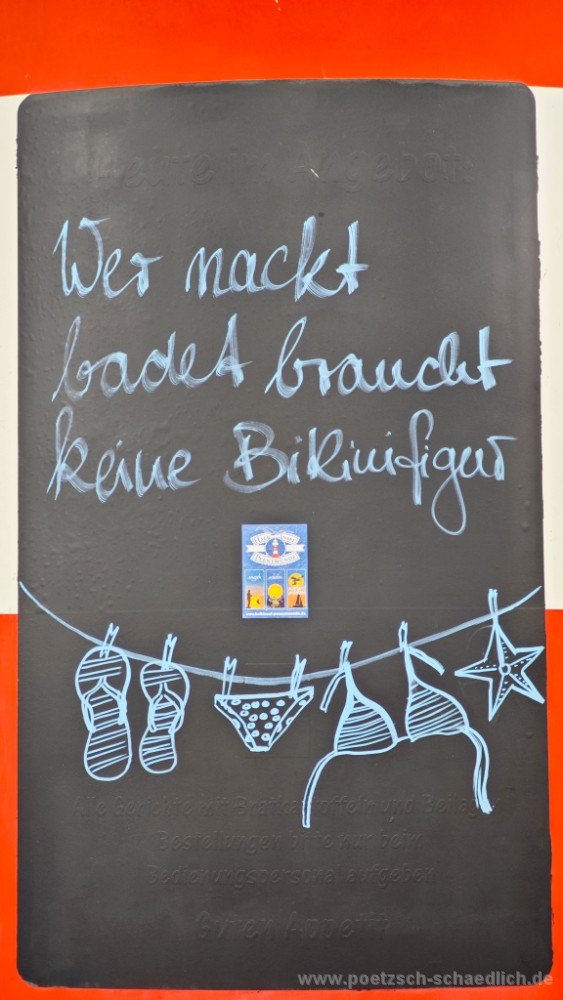 Wer nackt
badet braucht
keine Bikinifigur
Alle Gerichte mit Bratkartoffeln und
Bestellungen bitte nur beim
Bedienungspersonal aufgeben
Guten Appetit
www.poetzsch-schaedlich.de